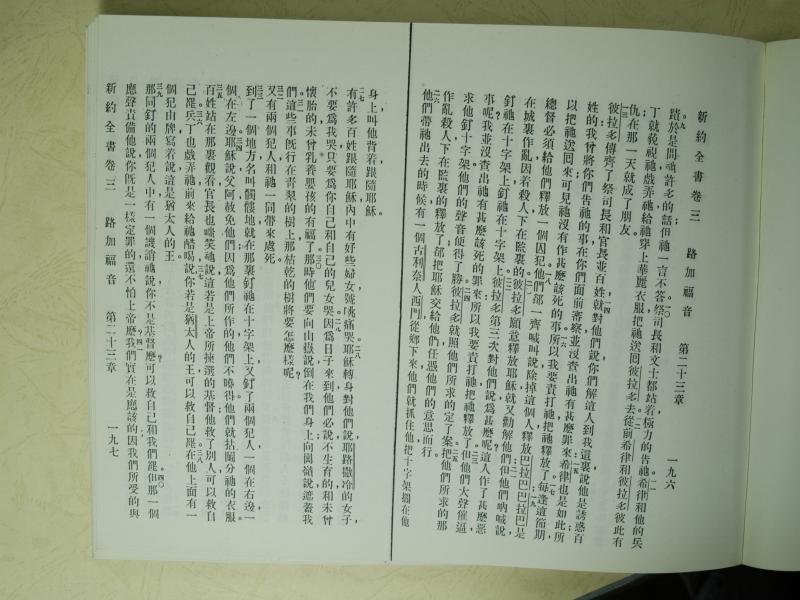 新約全書卷三　路加福音　第二十三章　一九六
路。於是問祂許多的話;但祂一言不答。祭司長和文士都站着極力的告祂。希律和他的兵
丁就藐視祂戲弄祂給祂穿上華麗衣服把祂送囘彼拉多去。從前希律和彼拉多彼此有
仇在那一天就成了朋友。
彼拉多傳齊了祭司長和官長並百姓就對他們說你們解這人到我這裏說他是誘惑百
姓的我曾將你們告祂的事在你們面前審察並沒查出祂有甚麼罪來;希律也是如此所
以把祂送囘來可見祂沒有作甚麼該死的事所以我要責打祂把祂釋放了。每逢這節期
總督必須給他們釋放一個囚犯。他們卻一齊喊叫說除掉這個人釋放巴拉巴巴拉巴是
在城裏作亂因着殺人下在監裏的彼拉多願意釋放耶穌就又勸解他們但他們吶喊說
釘祂在十字架上釘祂在十字架上彼拉多第三次對他們說爲甚麼呢這人作了甚麼惡
事呢我並沒查出祂有甚麼該死的罪來所以我要責打祂把祂釋放了但他們大聲催逼
求他釘十字架他們的聲音便得了勝彼拉多就照他們所求的定了案把他們所求的那
作亂殺人下在監裏的釋放了卻把耶穌交給他們任憑他們的意思而行。
他們帶祂出去的時候有一個古利奈人西門從鄉下來他們就抓住他把十字架擱在他
身上叫他背着跟隨耶穌。
有許多百姓跟隨耶穌內中有好些婦女號咷痛哭耶穌轉身對他們說耶路撒冷的女子
不要爲我哭只要爲你自己和自己的兒女哭因爲日子來到他們必說不生育的和未曾
懷胎的未曾乳養嬰孩的有福了那時他們要向山嶽說倒在我們身上向崗嶺說遮蓋我
們這些事既行在靑翠的樹上那枯乾的樹將要怎麼樣呢?
又有兩個犯人和祂一同帶來處死。
到了一個地方名叫髑髏地就在那裏釘祂在十字架上又釘了兩個犯人一個在右邊一
個在左邊耶穌說父阿赦免他們因爲他們所作的他們不曉得他們就拈鬮分祂的衣服。
百姓站在那裏觀看官長也嗤笑祂說這若是上帝所揀選的基督他救了別人可以救自
己罷兵丁也戲弄祂前來給祂酷喝說你若是猶太人的王可以救自己罷在他上面有一
個犯由牌寫着說這是猶太人的王。
那同釘的兩個犯人中有一個譏誚祂說你不是基督麼可以救自己和我們罷但那一個
應聲責備他說你既是一樣定罪的還不怕上帝麼我們實在是應該的因我們所受的與
新約全書卷三　路加福音　第二十三章　一九七